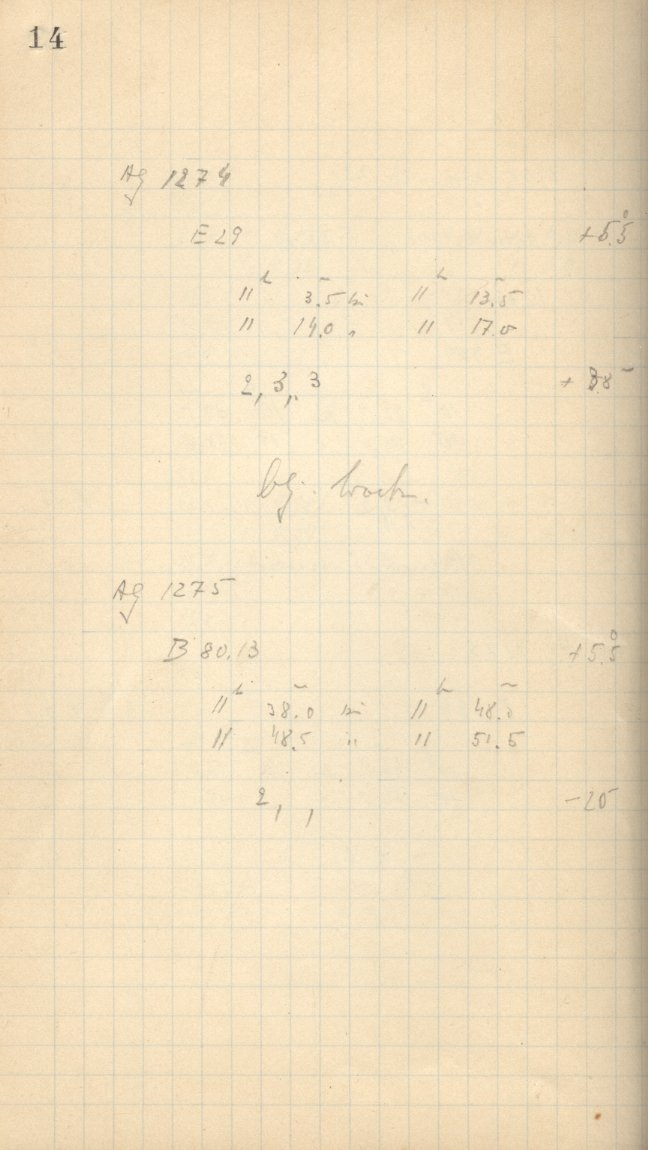 14
Ag 1274
E 29 +5.5°
11 h 3.5 m bis 11 h 13.5 m
11 14.0 " 11 17.0
2, 3,, 3
Ag 1275
B 80.13 +5.5°
11 h 38.0 m bis 11 h 48.0 m
11 48.5 " 11 51.5
2, , -20